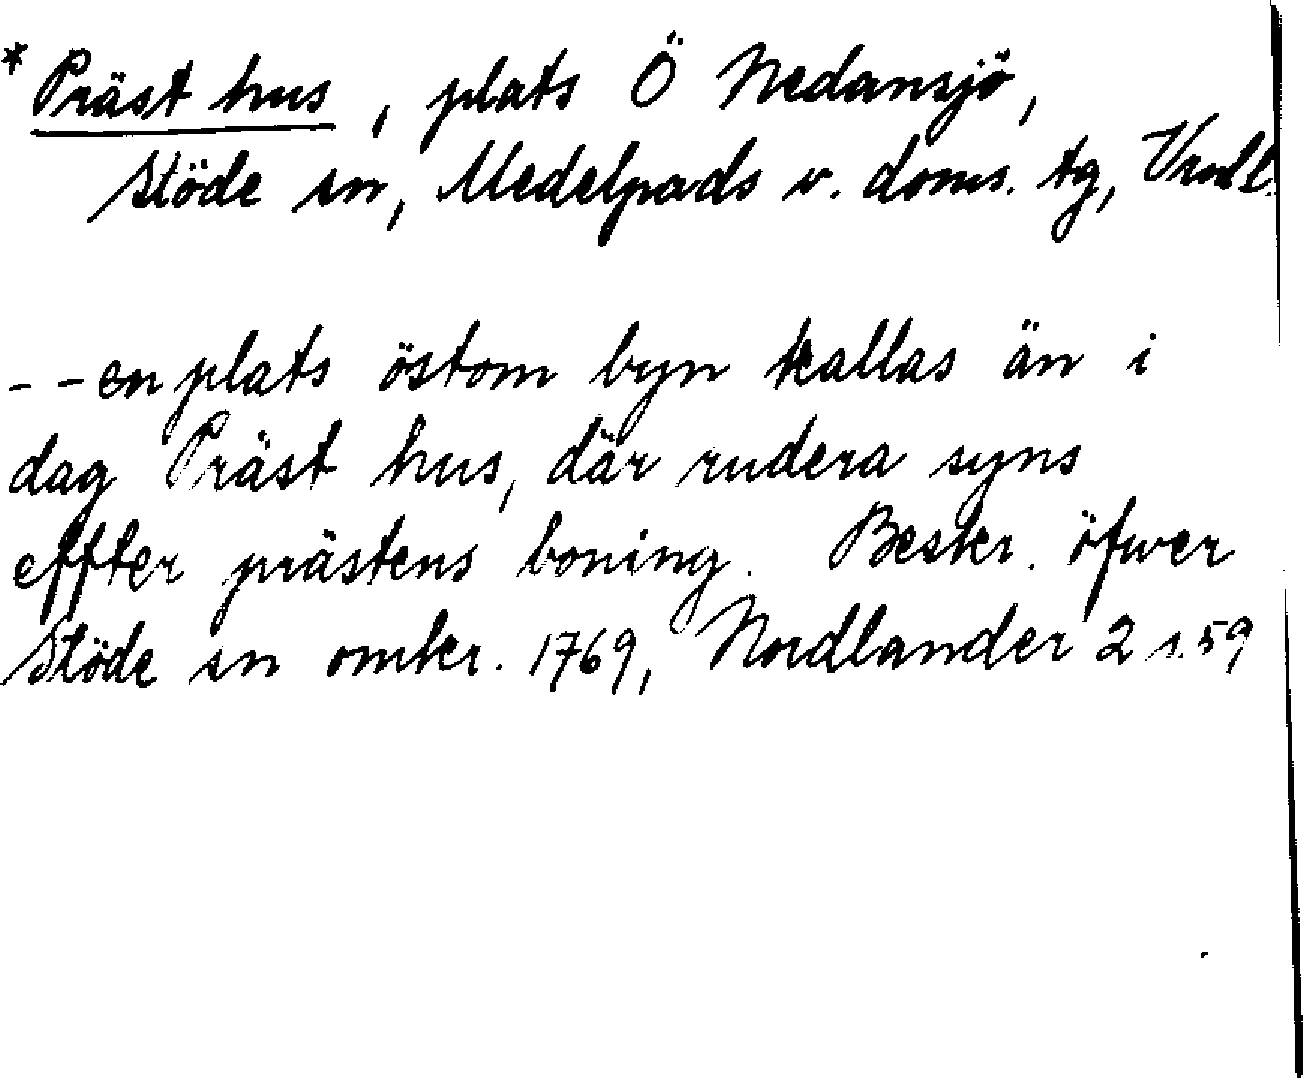 * Präst hus, plats Ö Nedansjö,
Stöde sn, Medelpads v. doms. tg, Vnrl.
- - en plats östom byn kallas än i
dag Präst hus, där rudera syns
effter prästens boning. Beskr. öfwer
Stöde sn omkr. 1769, Nordlander 2 s. 59